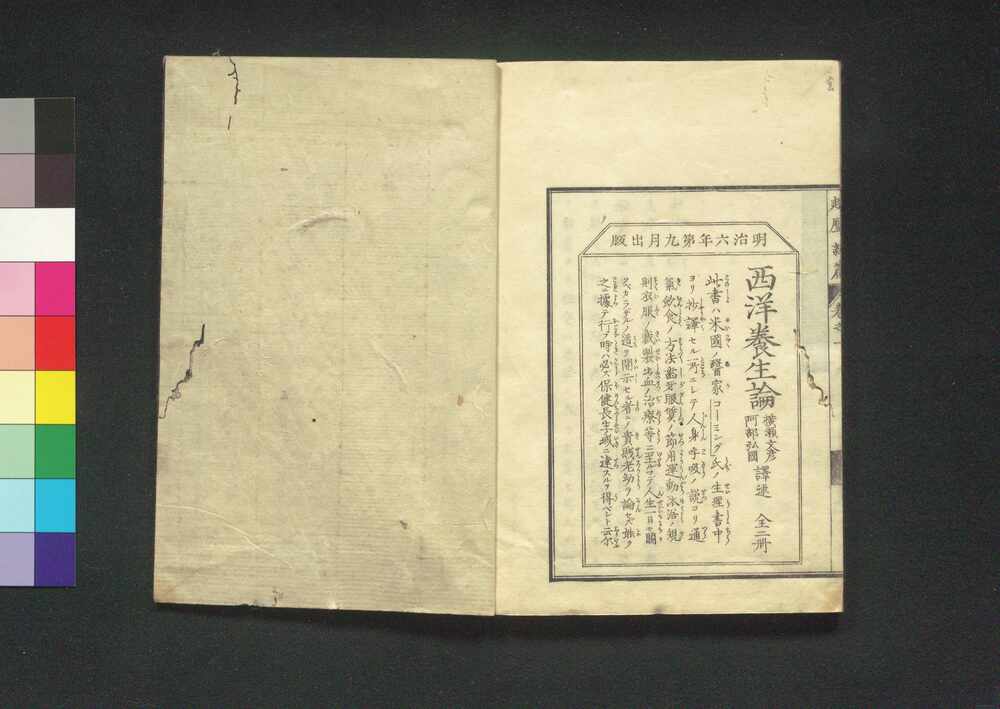 明治六年第九月出版
西洋養生論
横瀬文彦
阿部弘國
譯述 全二冊
此書ハ米國ノ醫家コーミング氏ノ生理書中
ヨリ抄譯セル所ニシテ人身呼吸ノ説ヨリ通
氣飲食ノ方法齒牙眼ノ節用運動沐浴ノ規
則衣服ノ裁製出血ノ治療等ニ至ルマテ人生一日モ闕
クヘカラザルノ道ヲ開示セル者ニ貴賤老幼ヲ論セズ
之ニ據テ行フ時ハ必ス保健長生ノ域ニ達スルヲ得ベシト云爾